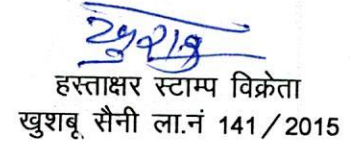 खुशबू
हस्ताक्षर स्टाम्प विक्रेता
खुशबू सैनी ला.नं 141/2015